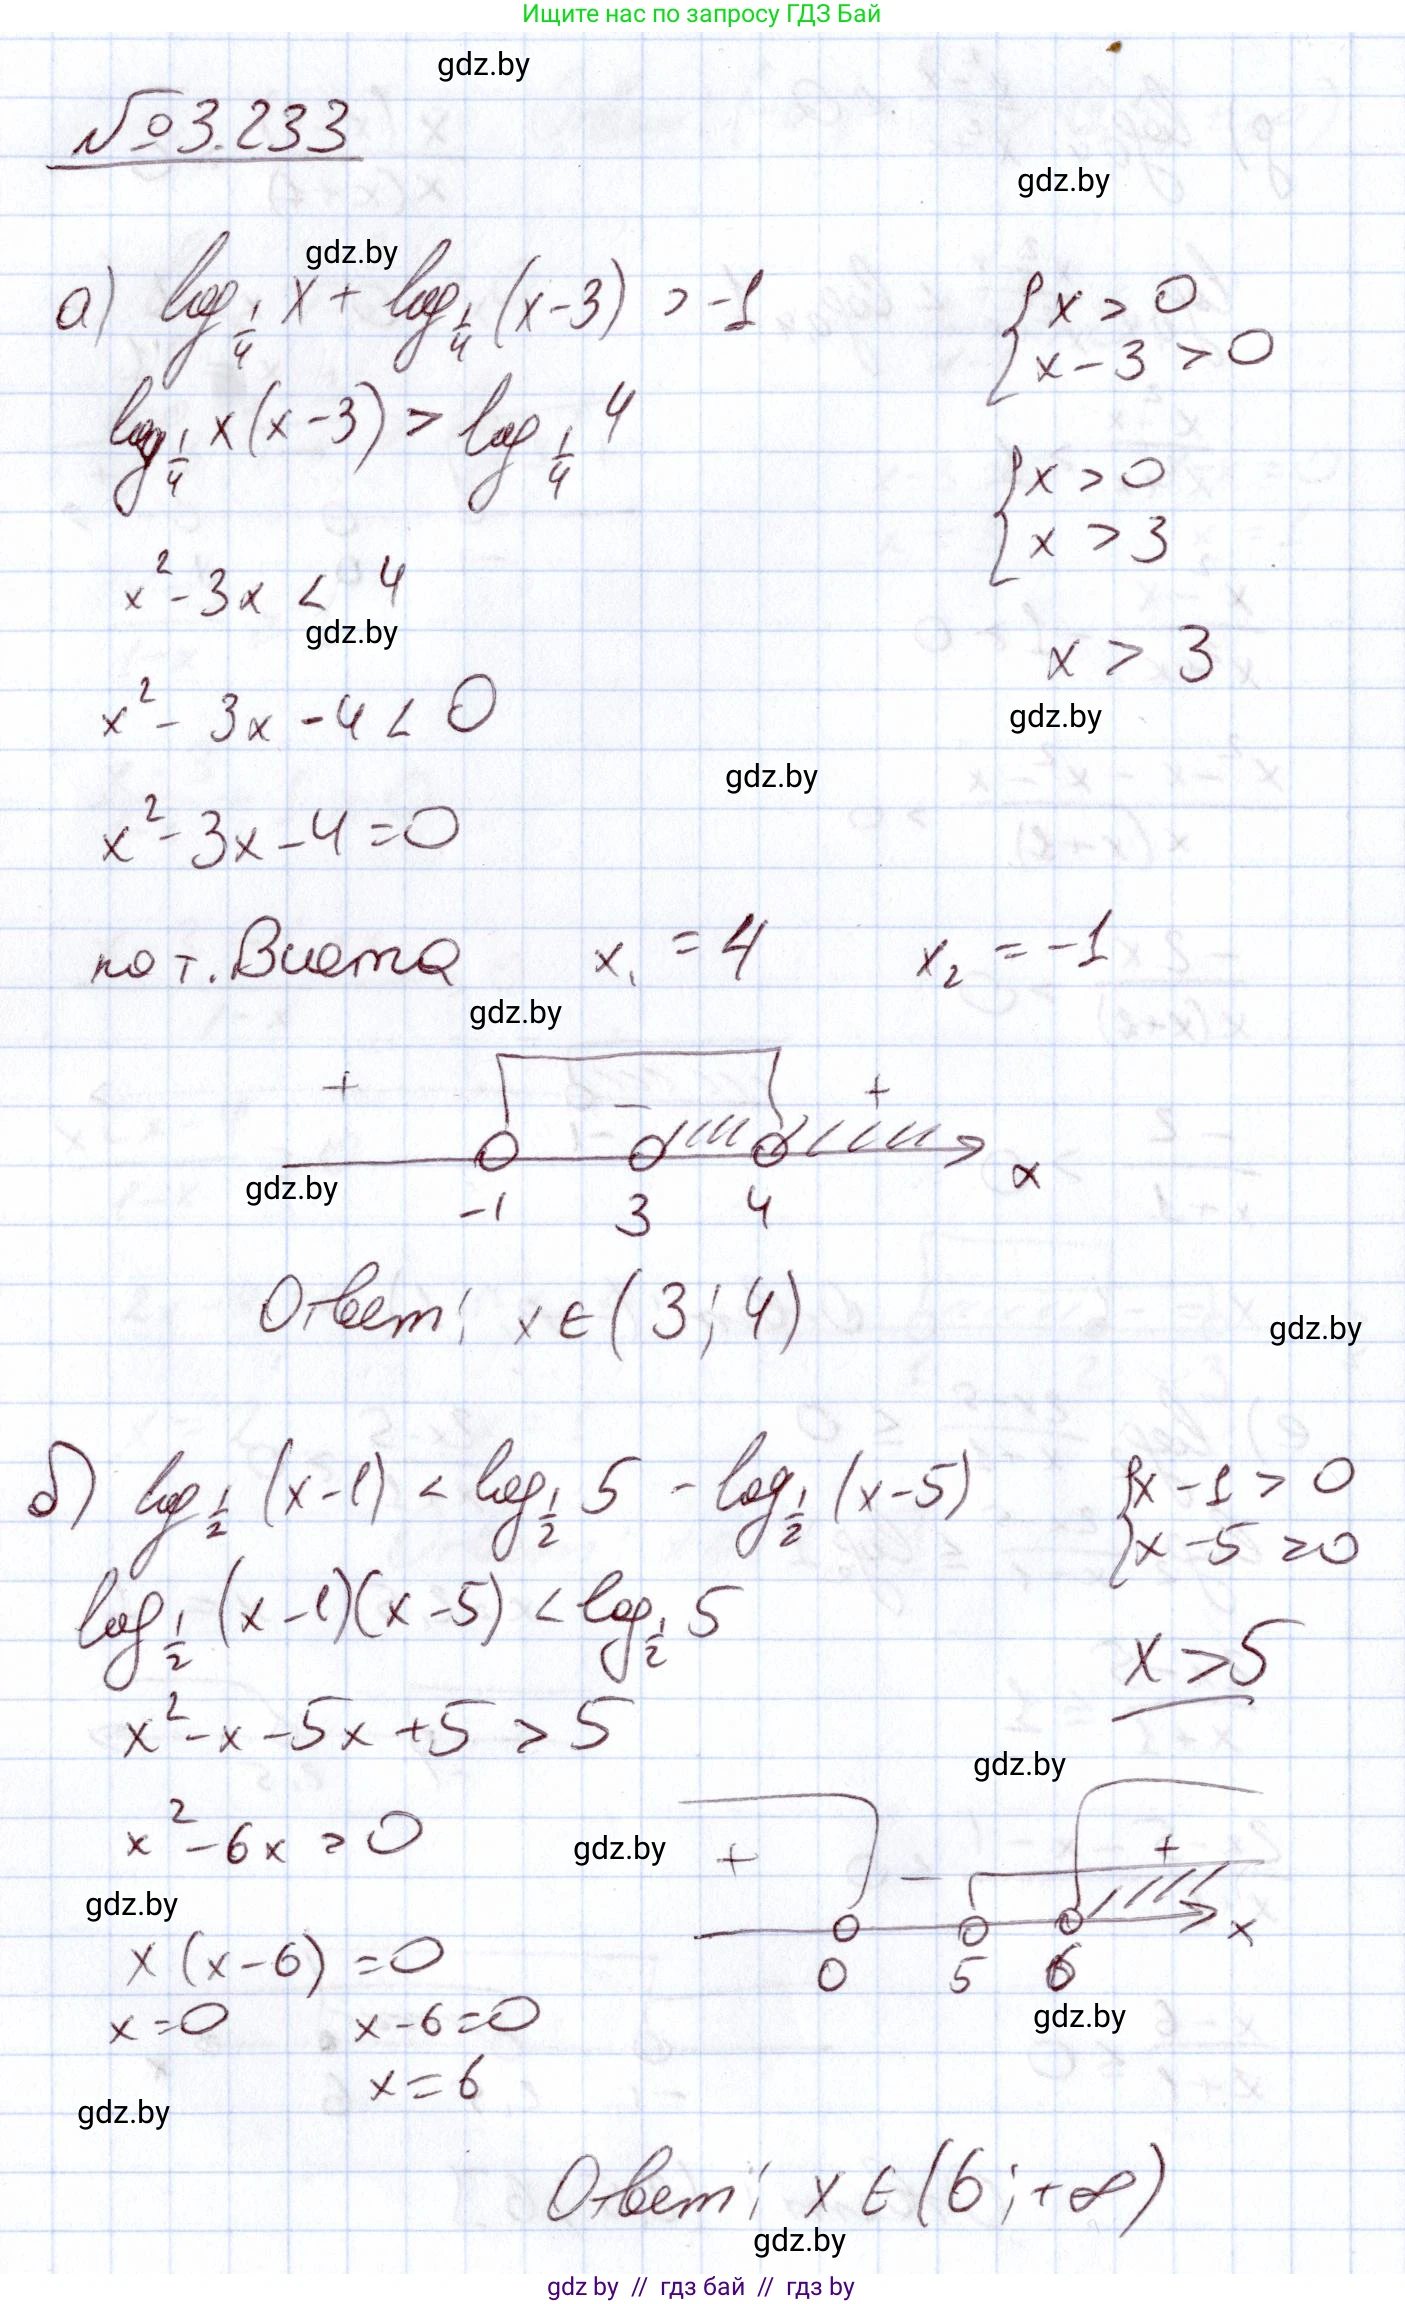 Ищите нас по запросу ГДЗ Бай
gdz.by
№3.233
gdz.by
gdz.by
а) log_{1/4} x + log_{1/4} (x-3) > -1
{ x > 0
x - 3 > 0
log_{1/4} x(x-3) > log_{1/4} 4
{ x > 0
x > 3
x² - 3x < 4
gdz.by
x > 3
x² - 3x - 4 < 0
gdz.by
gdz.by
x² - 3x - 4 = 0
по т. Виета x₁ = 4 x₂ = -1
gdz.by
+ - +
gdz.by
-1 3 4 x
Ответ: x ∈ (3; 4)
gdz.by
б) log_{1/2} (x-1) < log_{1/2} 5 - log_{1/2} (x-5)
{ x - 1 > 0
x - 5 > 0
log_{1/2} (x-1)(x-5) < log_{1/2} 5
x > 5
x² - x - 5x + 5 > 5
gdz.by
x² - 6x > 0
gdz.by
+ - +
gdz.by
x (x-6) = 0
0 5 6 x
x = 0 x - 6 = 0
gdz.by
x = 6
gdz.by
Ответ: x ∈ (6; +∞)
gdz.by
gdz by // гдз бай // гдз by